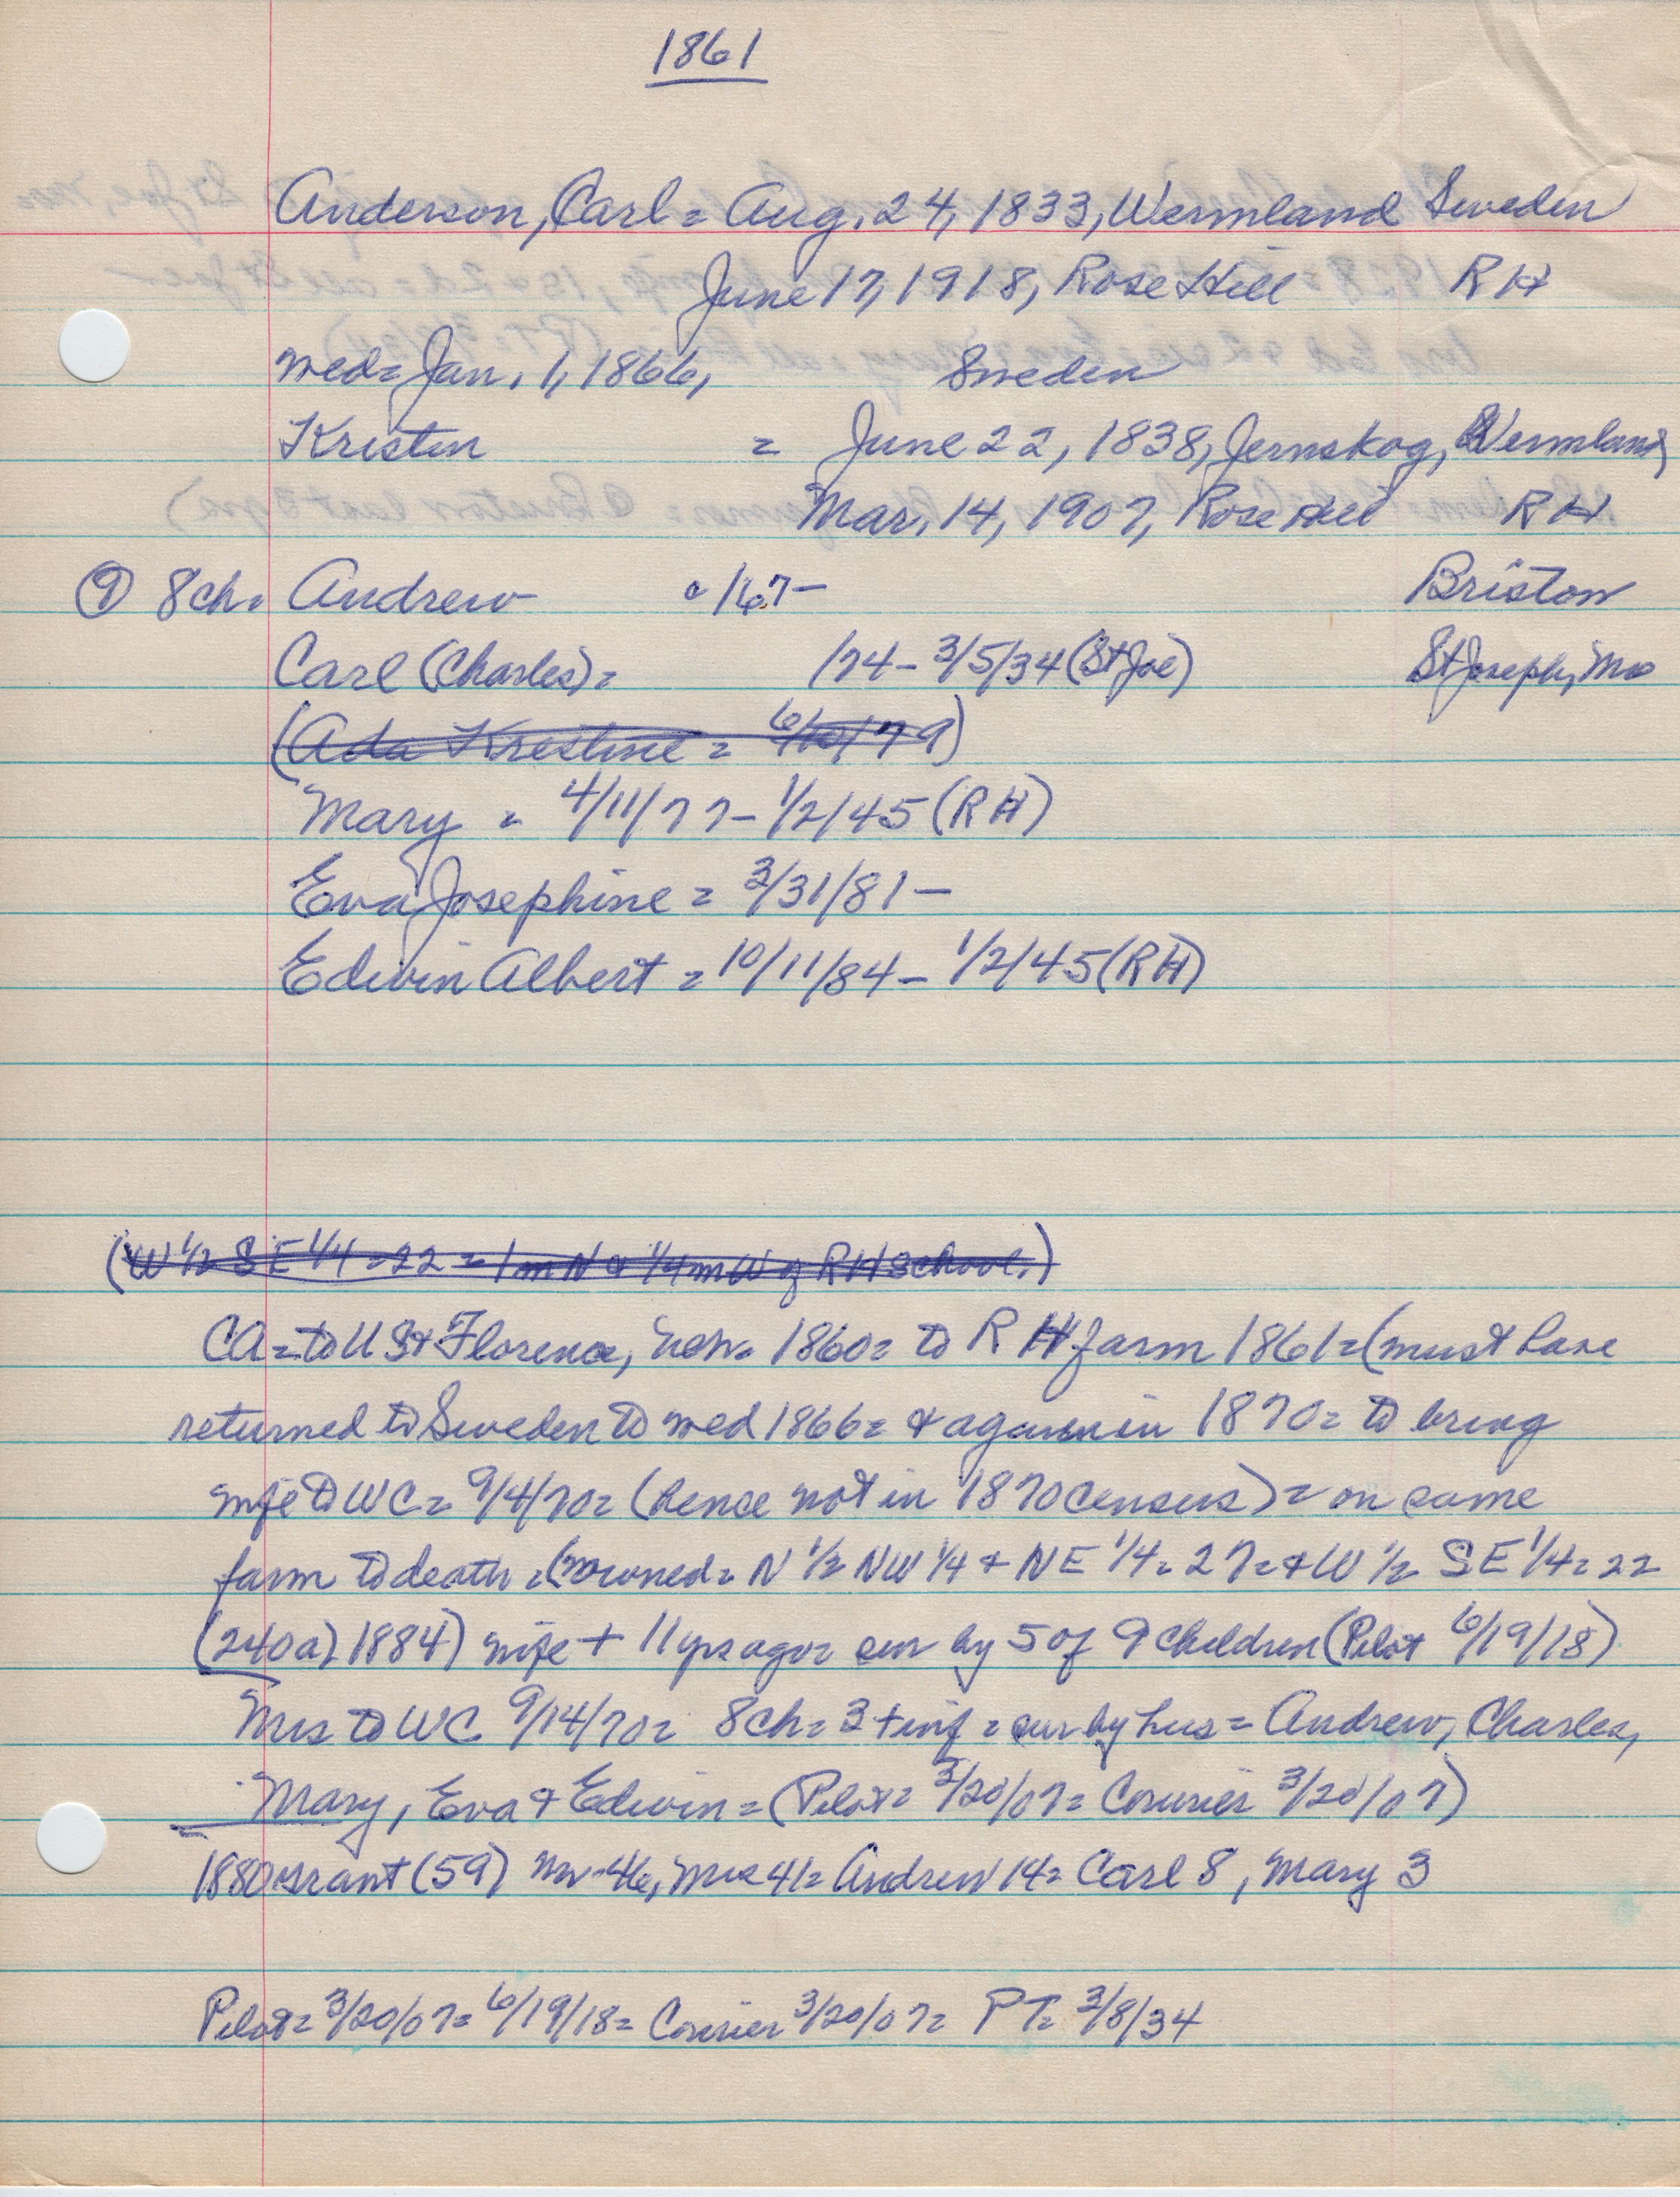 1861
Anderson, Carl = Aug. 24, 1833, Wermland Sweden
June 17, 1918, Rose Hill RH
med = Jan. 1, 1866, Sweden
Kristin = June 22, 1838, Jernskog, Wermland
Mar. 14, 1907, Rose Hill RH
(9) 8 ch. Andrew /67 – Briston
Carl (Charles) = /74 – 3/5/34 (St Joe) St Joseph, Mo
(Ada Krestine = 6/10/79)
Mary = 4/11/77 – 1/2/45 (RH)
Eva Josephine = 3/31/81 –
Edwin Albert = 10/11/84 – 1/2/45 (RH)
(W 1/2 SE 1/4 = 22 = 1 m N & 1/4 m W of RH School.)
CA = to US & Florence, 1860 = to RH farm 1861 = (must have
returned to Sweden to med 1866 = & again in 1870 = to bring
wife to WC = 9/4/70 = (hence not in 1870 census) = on same
farm to death = owned = N 1/2 NW 1/4 & NE 1/4 = 27 = & W 1/2 SE 1/4 = 22
(240a) 1884) wife + 11 yrs ago = sur by 5 of 9 children (Pilot 6/19/18)
Mrs to WC 9/14/70 = 8 ch = 3 + inf = sur by hus = Andrew, Charles,
Mary, Eva & Edwin = (Pilot = 3/20/07 = Courier 3/20/07)
1880 Grant (59) Mr 46, Mrs 41 = Andrew 14 = Carl 8, Mary 3
Pilot = 3/20/07 = 6/19/18 = Courier 3/20/07 = PT = 3/8/34